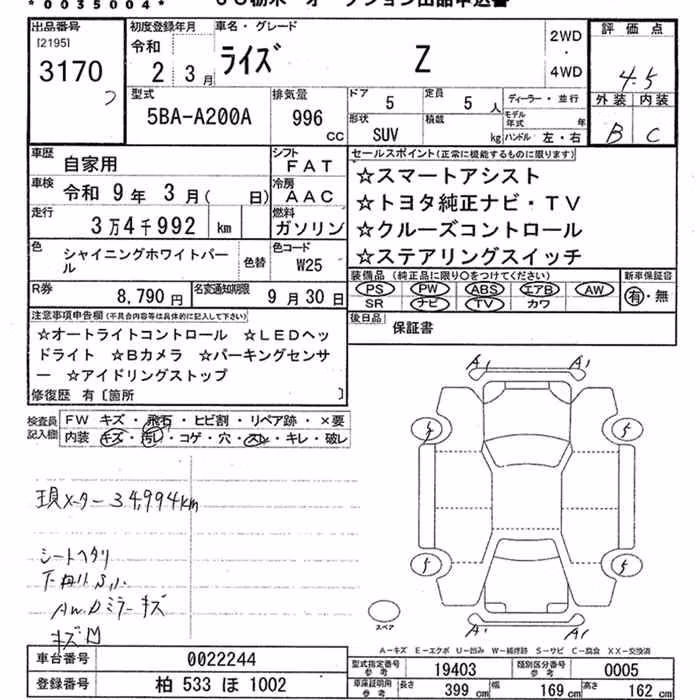 *0035004*
出品番号
[2195]
3170
初度登録年月
令和
2年 3月
車名・グレード
ライズ Z
2WD
・
4WD
評価点
4.5
外装 内装
B C
型式
5BA-A200A
排気量
996
CC
ドア 5
定員 5人
形状
SUV
積載
kg
ディーラー・並行
モデル年式 年
ハンドル 左・右
車歴
自家用
シフト
FAT
車検
令和 9年 3月( 日)
冷房
AAC
走行
3万4千992 km
燃料
ガソリン
色
シャイニングホワイトパール
色替
色コード
W25
R券
8,790円
名変通知期限
9月30日
セールスポイント(正常に機能するものに限ります)
☆スマートアシスト
☆トヨタ純正ナビ・TV
☆クルーズコントロール
☆ステアリングスイッチ
装備品 (純正品に限り○をつけてください)
PS PW ABS エアB AW
SR ナビ TV カワ
新車保証書
有・無
後日品
保証書
注意事項申告欄(不具合内容等は具体的に記入して下さい)
☆オートライトコントロール ☆LEDヘッ
ドライト ☆Bカメラ ☆パーキングセンサ
ー ☆アイドリングストップ
修復歴 有〔箇所 〕
検査員記入欄
FW キズ・飛石・ヒビ割・リペア跡・×要
内装 キズ・汚レ・コゲ・穴・スレ・キレ・破レ
現メーター 34,994km
シートヘタリ
ミラーキズ
A1 A1
5 5
5 5
A1 A1
スペア
A-キズ E-エクボ U-凹み W-補修跡 S-サビ C-腐食 XX-交換済
車台番号
0022244
登録番号
柏 533 ほ 1002
型式指定番号
参考
19403
類別区分番号
参考
0005
車庫証明用
参考
長さ 399 cm
幅 169 cm
高さ 162 cm